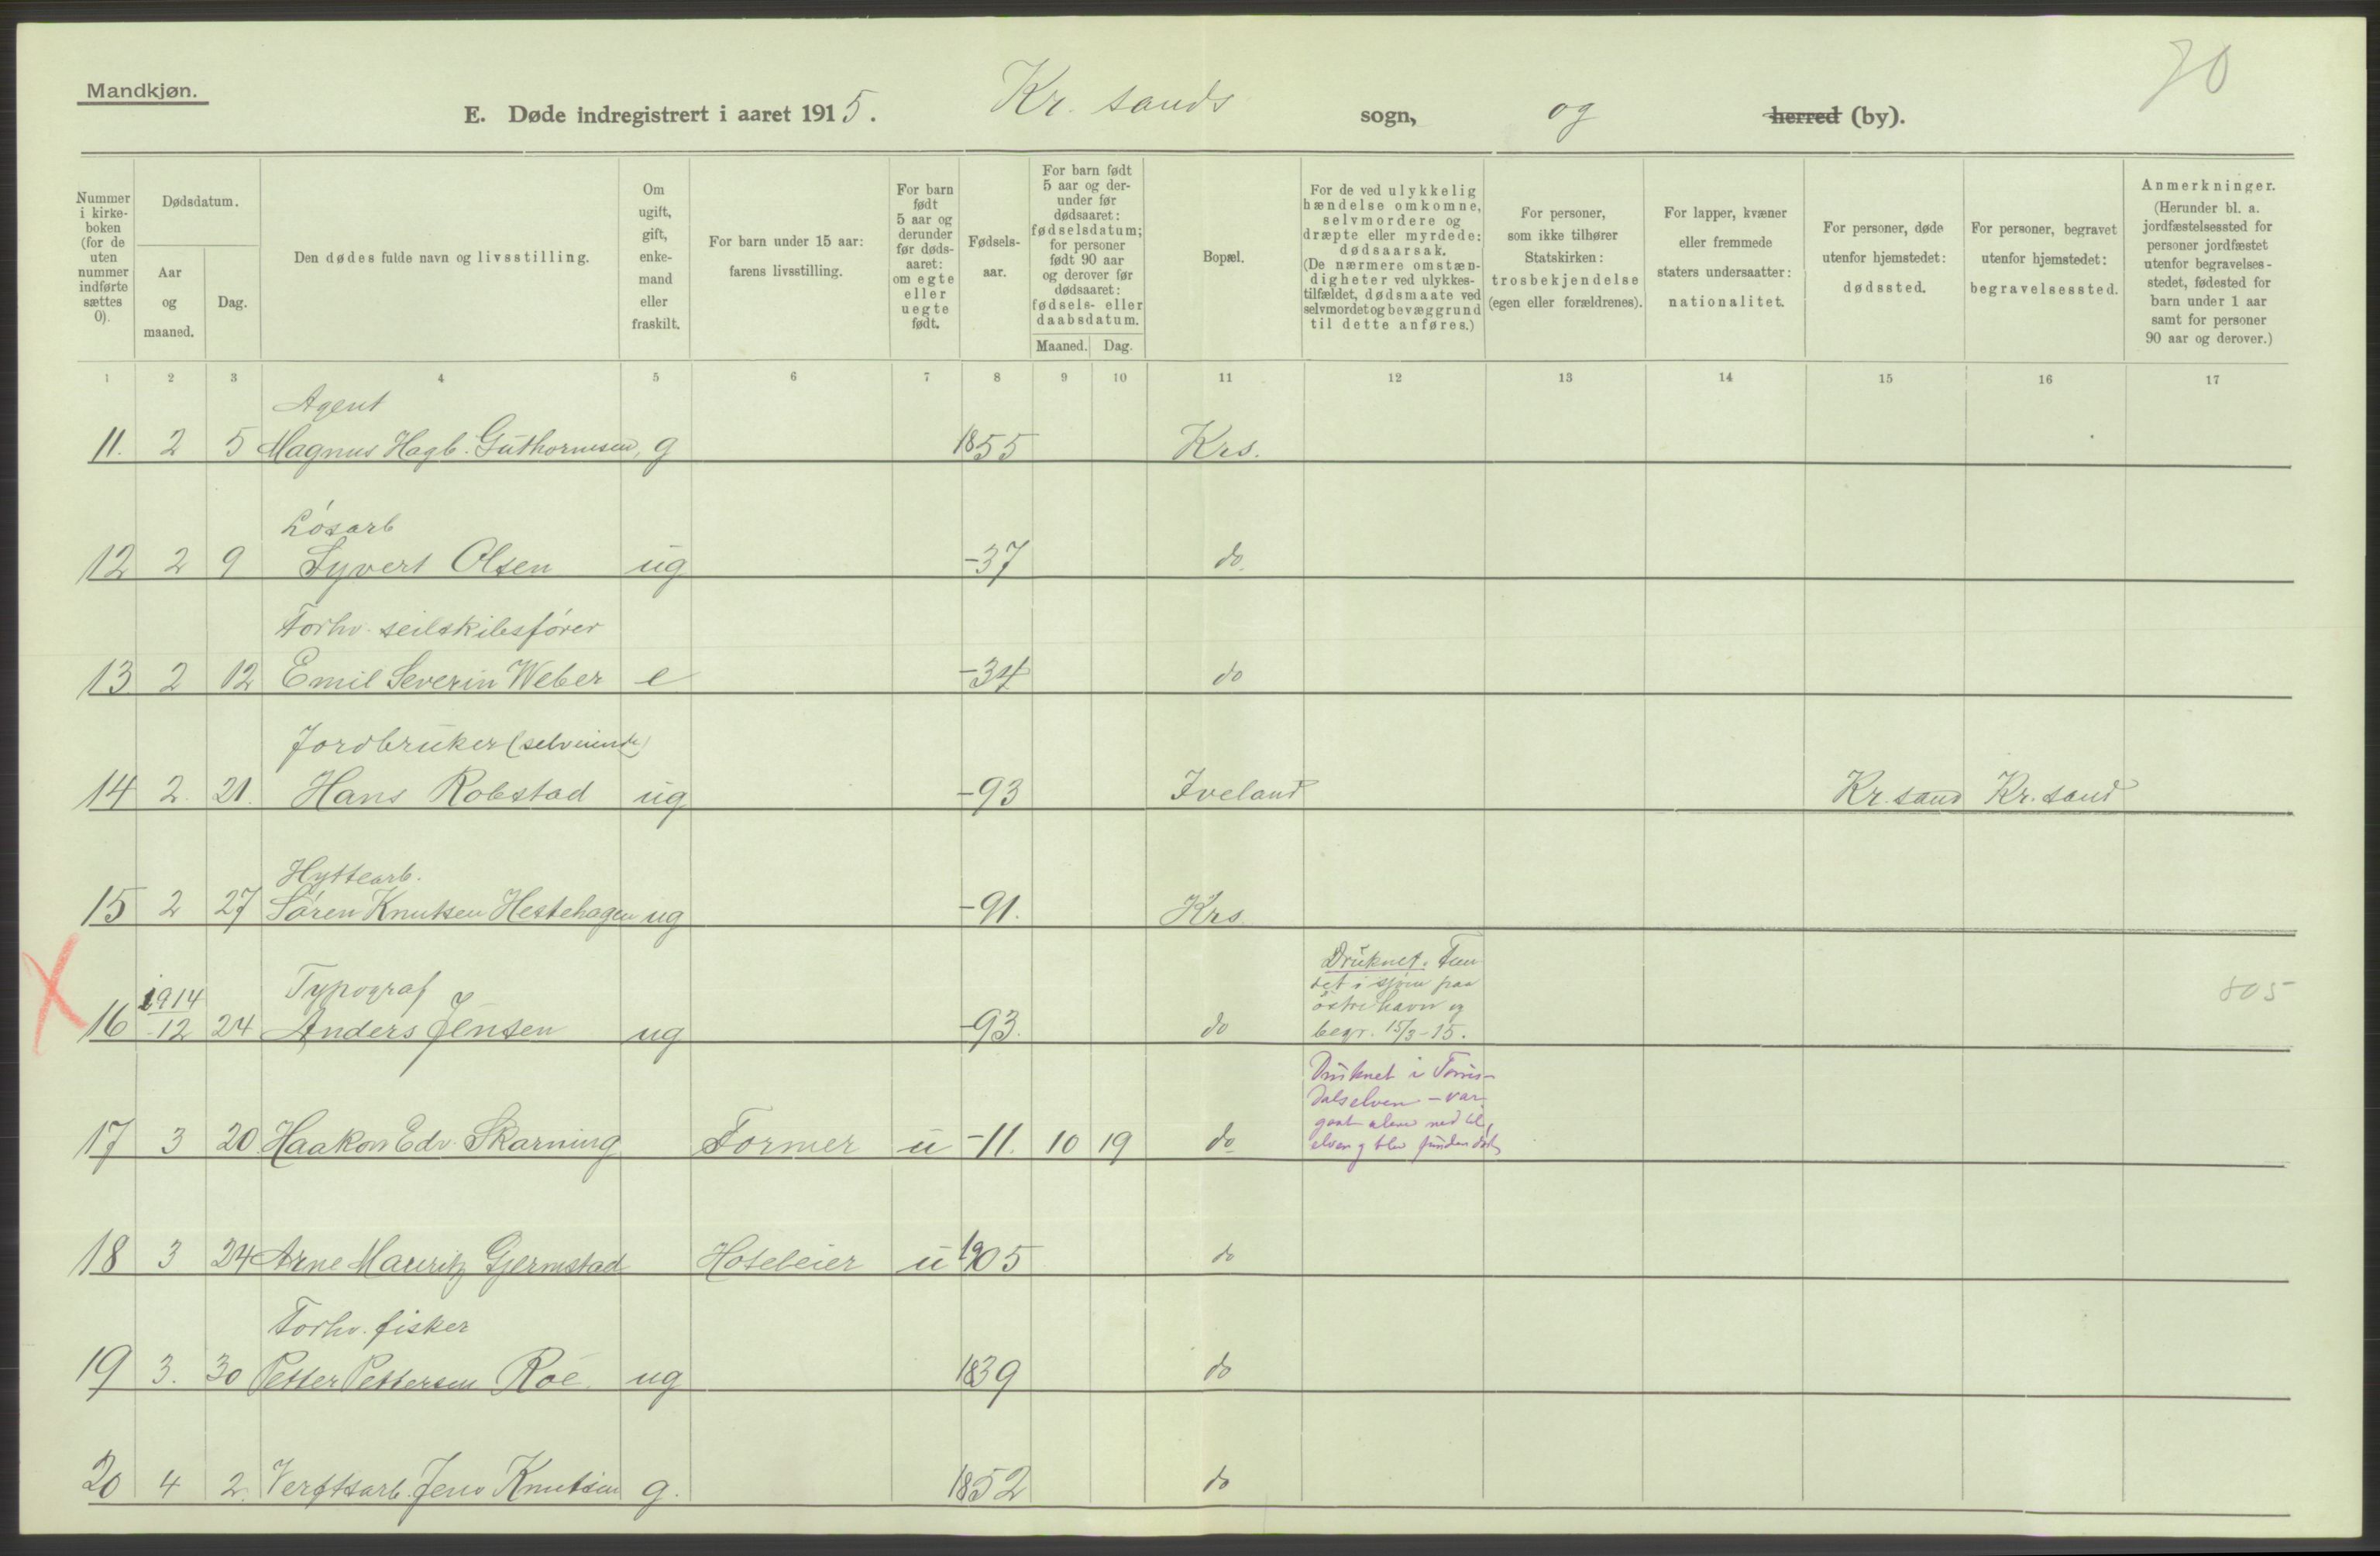 Mandkjøn.
70
E. Døde indregistrert i aaret 1915. Kr. sands sogn, og herred (by).
Nummer i kirke-boken (for de uten nummer indførte sættes 0).
Dødsdatum.
Aar og maaned.
Dag.
Den dødes fulde navn og livsstilling.
Om ugift, gift, enke-mand eller fraskilt.
For barn under 15 aar: farens livsstilling.
For barn født 5 aar og derunder før døds-aaret: om egte eller uegte født.
Fødsels-aar.
For barn født 5 aar og der-under før dødsaaret: fødselsdatum; for personer født 90 aar og derover før dødsaaret: fødsels- eller daabsdatum.
Maaned. Dag.
Bopæl.
For de ved ulykkelig hændelse omkomne, selvmordere og dræpte eller myrdede: dødsaarsak. (De nærmere omstæn-digheter ved ulykkes-tilfældet, dødsmaate ved selvmordet og bevæggrund til dette anføres.)
For personer, som ikke tilhører Statskirken: trosbekjendelse (egen eller forældrenes).
For lapper, kvæner eller fremmede staters undersaatter: nationalitet.
For personer, døde utenfor hjemstedet: dødssted.
For personer, begravet utenfor hjemstedet: begravelsessted.
Anmerkninger. (Herunder bl. a. jordfæstelsessted for personer jordfæstet utenfor begravelses-stedet, fødested for barn under 1 aar samt for personer 90 aar og derover.)
1 2 3 4 5 6 7 8 9 10 11 12 13 14 15 16 17
Agent
11. 2 5 Magnus Hagb. Guthormsen, g 1855 Krs.
Løsarb
12 2 9 Syvert Olsen ug -37 do.
Forhv. seilskibsfører
13 2 12 Emil Severin Weber e -34 do
Jordbruker (selveiende)
14 2. 21. Hans Robstad ug -93 Iveland Kr. sand Kr. sand
Hyttearb.
15 2 27 Søren Knutsen Hestehagen ug -91. Krs
X
1914 Typograf
16 -12 24 Anders Jensen ug -93. do
Druknet. Fun
det i sjøen paa
østre havn og
begr. 15/3-15.
805
17 3 20 Haakon Edv. Skarning Former u -11. 10 19 do
Druknet i Torris-
dalselven - var
gaat alene ned til
elven og blev funden død
18 3 24 Arne Mauritz Gjermstad Hoteleier u 1905 do
Forhv. fisker
19 3. 30 Petter Pettersen Roe. ug 1839 do
20 4 2. Verftsarb. Jens Knutsen g. 1852 do